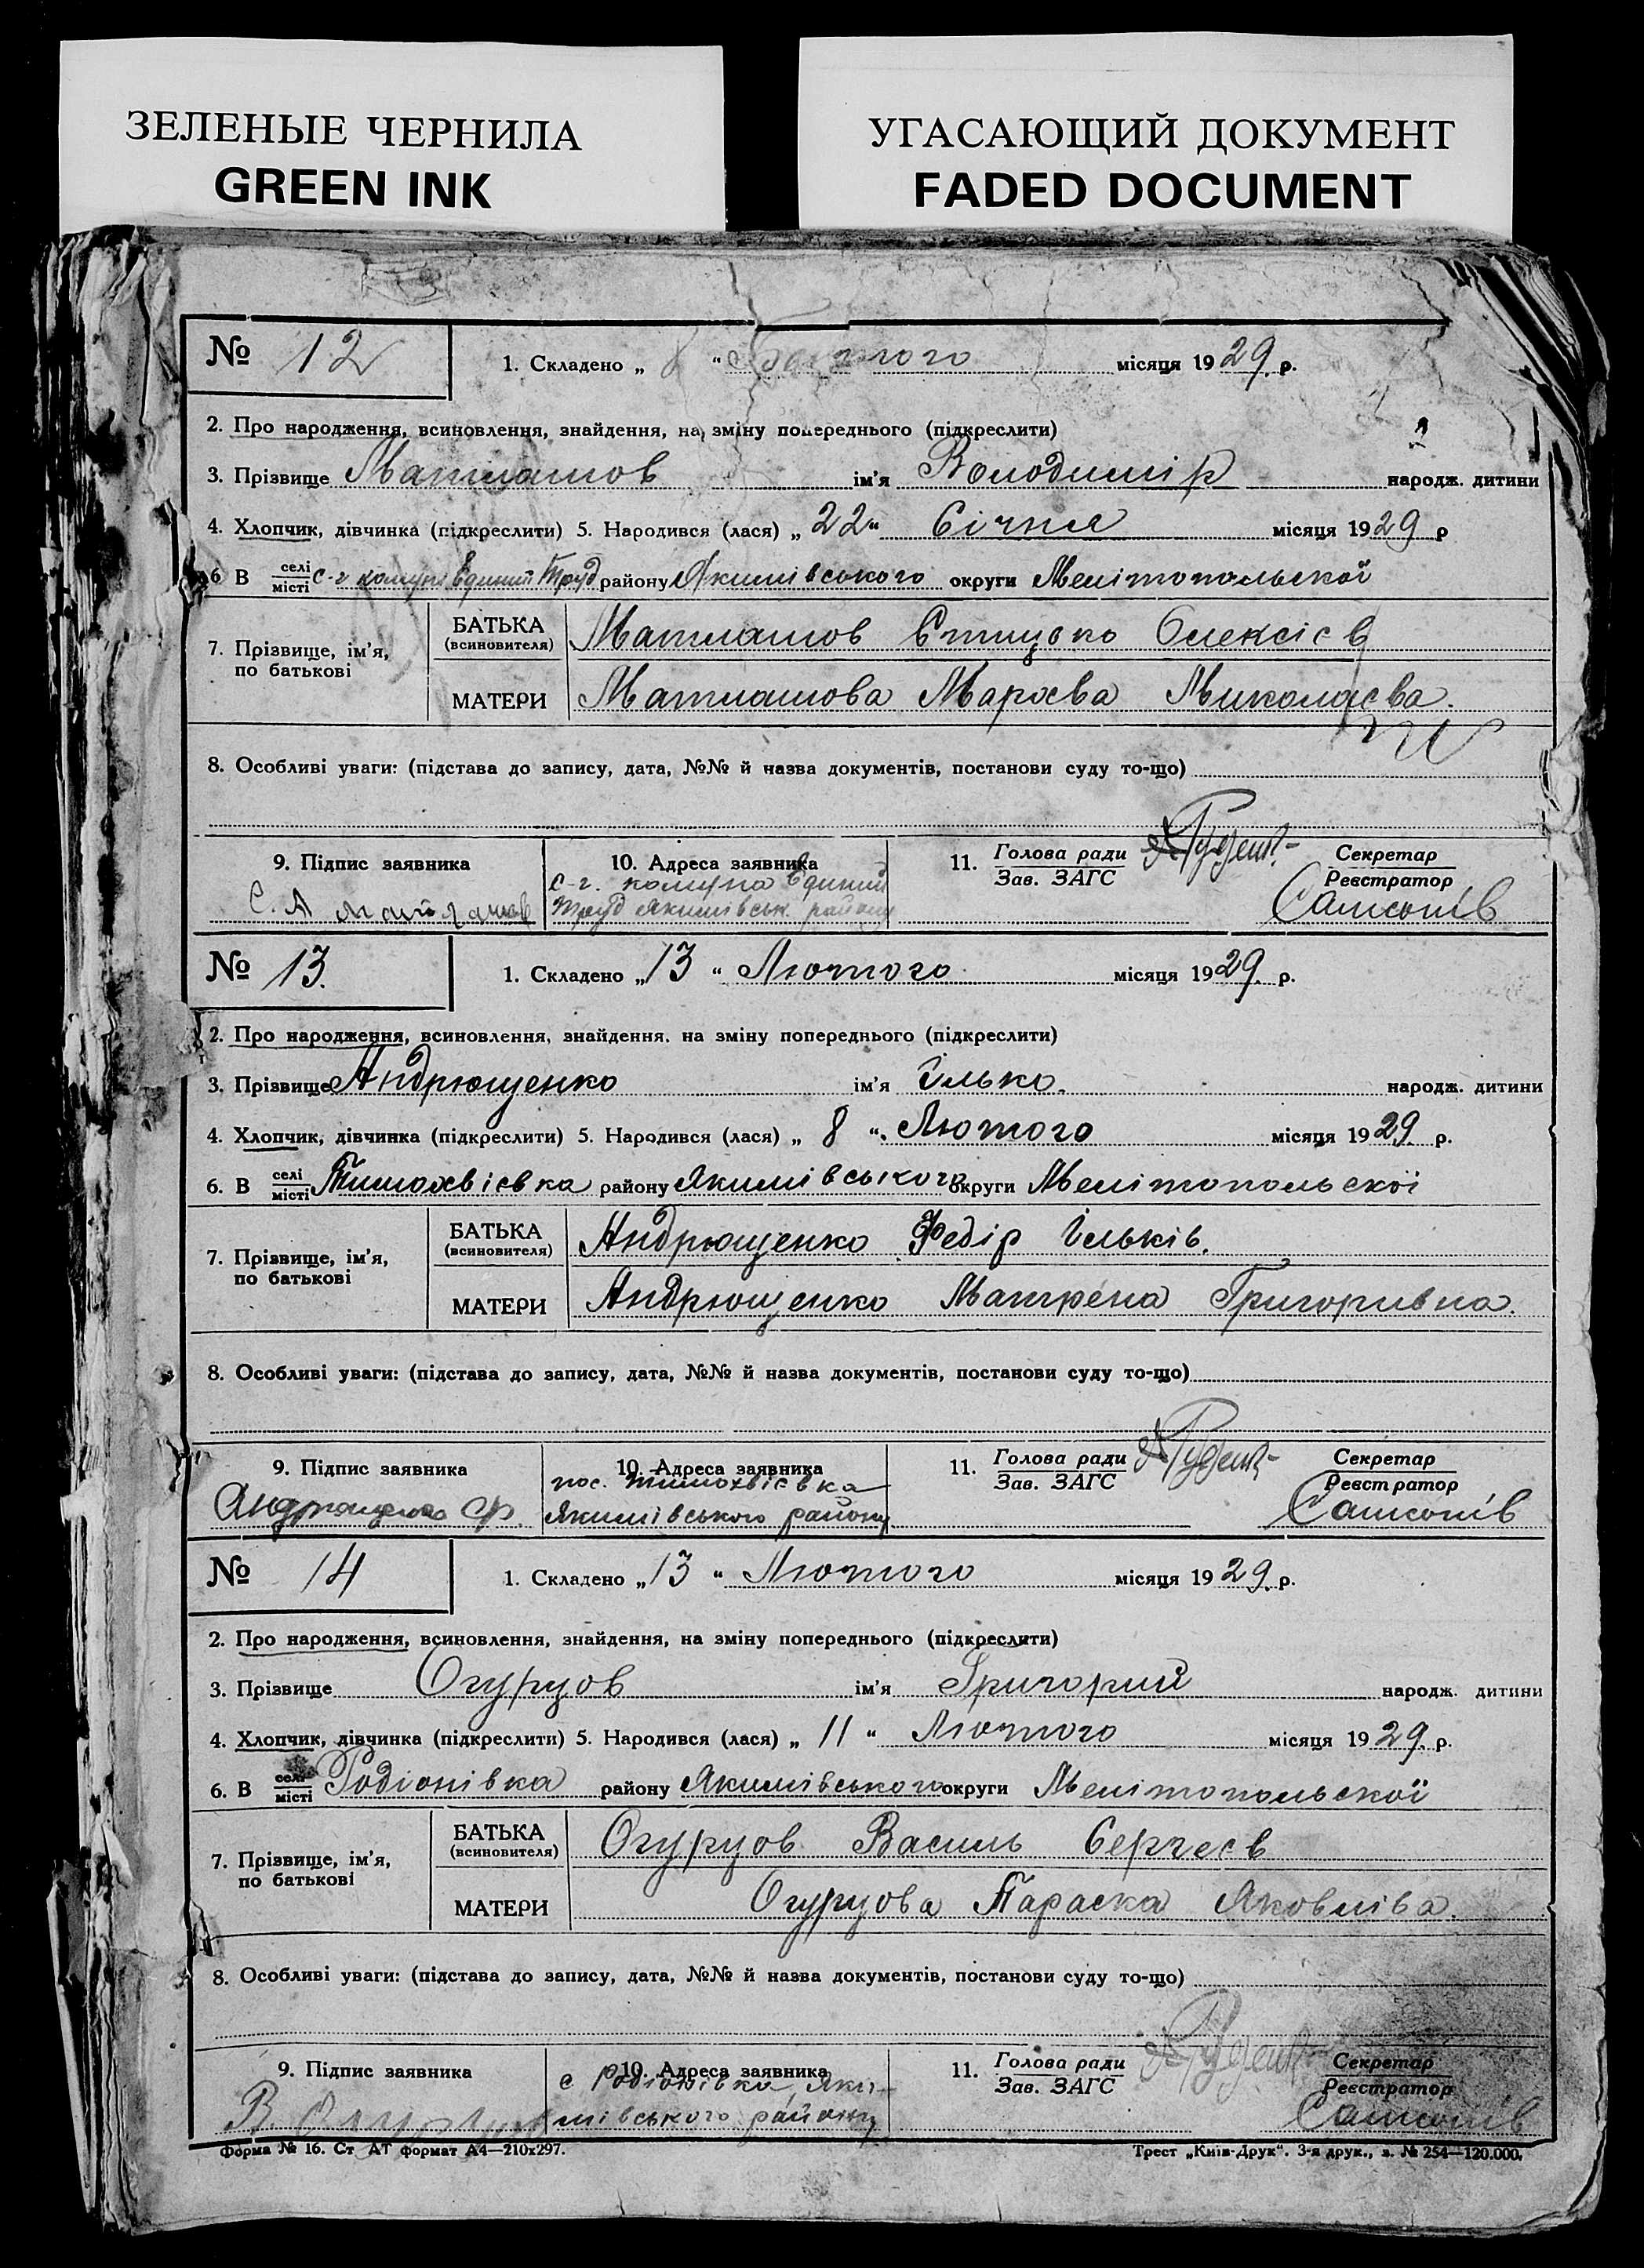 ЗЕЛЕНЫЕ ЧЕРНИЛА
GREEN INK
УГАСАЮЩИЙ ДОКУМЕНТ
FADED DOCUMENT
№ 12 1. Складено „ 8 “ Лютого місяця 1929 р.
2. Про народження, всиновлення, знайдення, на зміну попереднього (підкреслити)
3. Прізвище Матлашов ім'я Володимір народж. дитини
4. Хлопчик, дівчинка (підкреслити) 5. Народився (лася) „ 22 “ Січня місяця 1929 р
6 В селі/місті с-г комуні Єдиний Труд району Якимівського округи Мелітопольської
7. Прізвище, ім'я, по батькові
БАТЬКА (всиновителя) Матлашов Олексієв
МАТЕРИ Матлашова Миколаєва.
8. Особливі уваги: (підстава до запису, дата, №№ й назва документів, постанови суду то-що)
9. Підпис заявника 10. Адреса заявника 11. Голова ради Секретар
Зав. ЗАГС Реєстратор
С. А. Матлашов с-г. комуна Єдиний Самсонів
Труд Якимівськ району
№ 13. 1. Складено „ 13 “ Лютого місяця 1929. р.
2. Про народження, всиновлення, знайдення, на зміну попереднього (підкреслити)
3. Прізвище Андрющенко ім'я Ілько. народж. дитини
4. Хлопчик, дівчинка (підкреслити) 5. Народився (лася) „ 8 “ Лютого місяця 1929. р.
6. В селі/місті Тимохвієвка району Якимівського округи Мелітопольської
7. Прізвище, ім'я, по батькові
БАТЬКА (всиновителя) Андрющенко Федір Ільків.
МАТЕРИ Андрющенко Матрена Григоривна.
8. Особливі уваги: (підстава до запису, дата, №№ й назва документів, постанови суду то-що)
9. Підпис заявника 10. Адреса заявника 11. Голова ради Секретар
Зав. ЗАГС Реєстратор
Андрющенко Ф. пос. Тимохвієвка Самсонів
Якимівського району
№ 14 1. Складено „ 13 “ Лютого місяця 1929. р.
2. Про народження, всиновлення, знайдення, на зміну попереднього (підкреслити)
3. Прізвище Огурцов ім'я Григорий народж. дитини
4. Хлопчик, дівчинка (підкреслити) 5. Народився (лася) „ 11 “ Лютого місяця 1929. р.
6. В селі/місті Родіонівка району Якимівського округи Мелітопольської
7. Прізвище, ім'я, по батькові
БАТЬКА (всиновителя) Огурцов Василь Сергеєв
МАТЕРИ Огурцова Параска Яковліва.
8. Особливі уваги: (підстава до запису, дата, №№ й назва документів, постанови суду то-що)
9. Підпис заявника 10. Адреса заявника 11. Голова ради Секретар
Зав. ЗАГС Реєстратор
В. Огурцов с Родіонівка, Яки- Самсонів
мівського району
Форма № 16. Ст АТ формат А4—210х297. Трест „Київ-Друк“. 3-я друк., з. № 254—120.000.